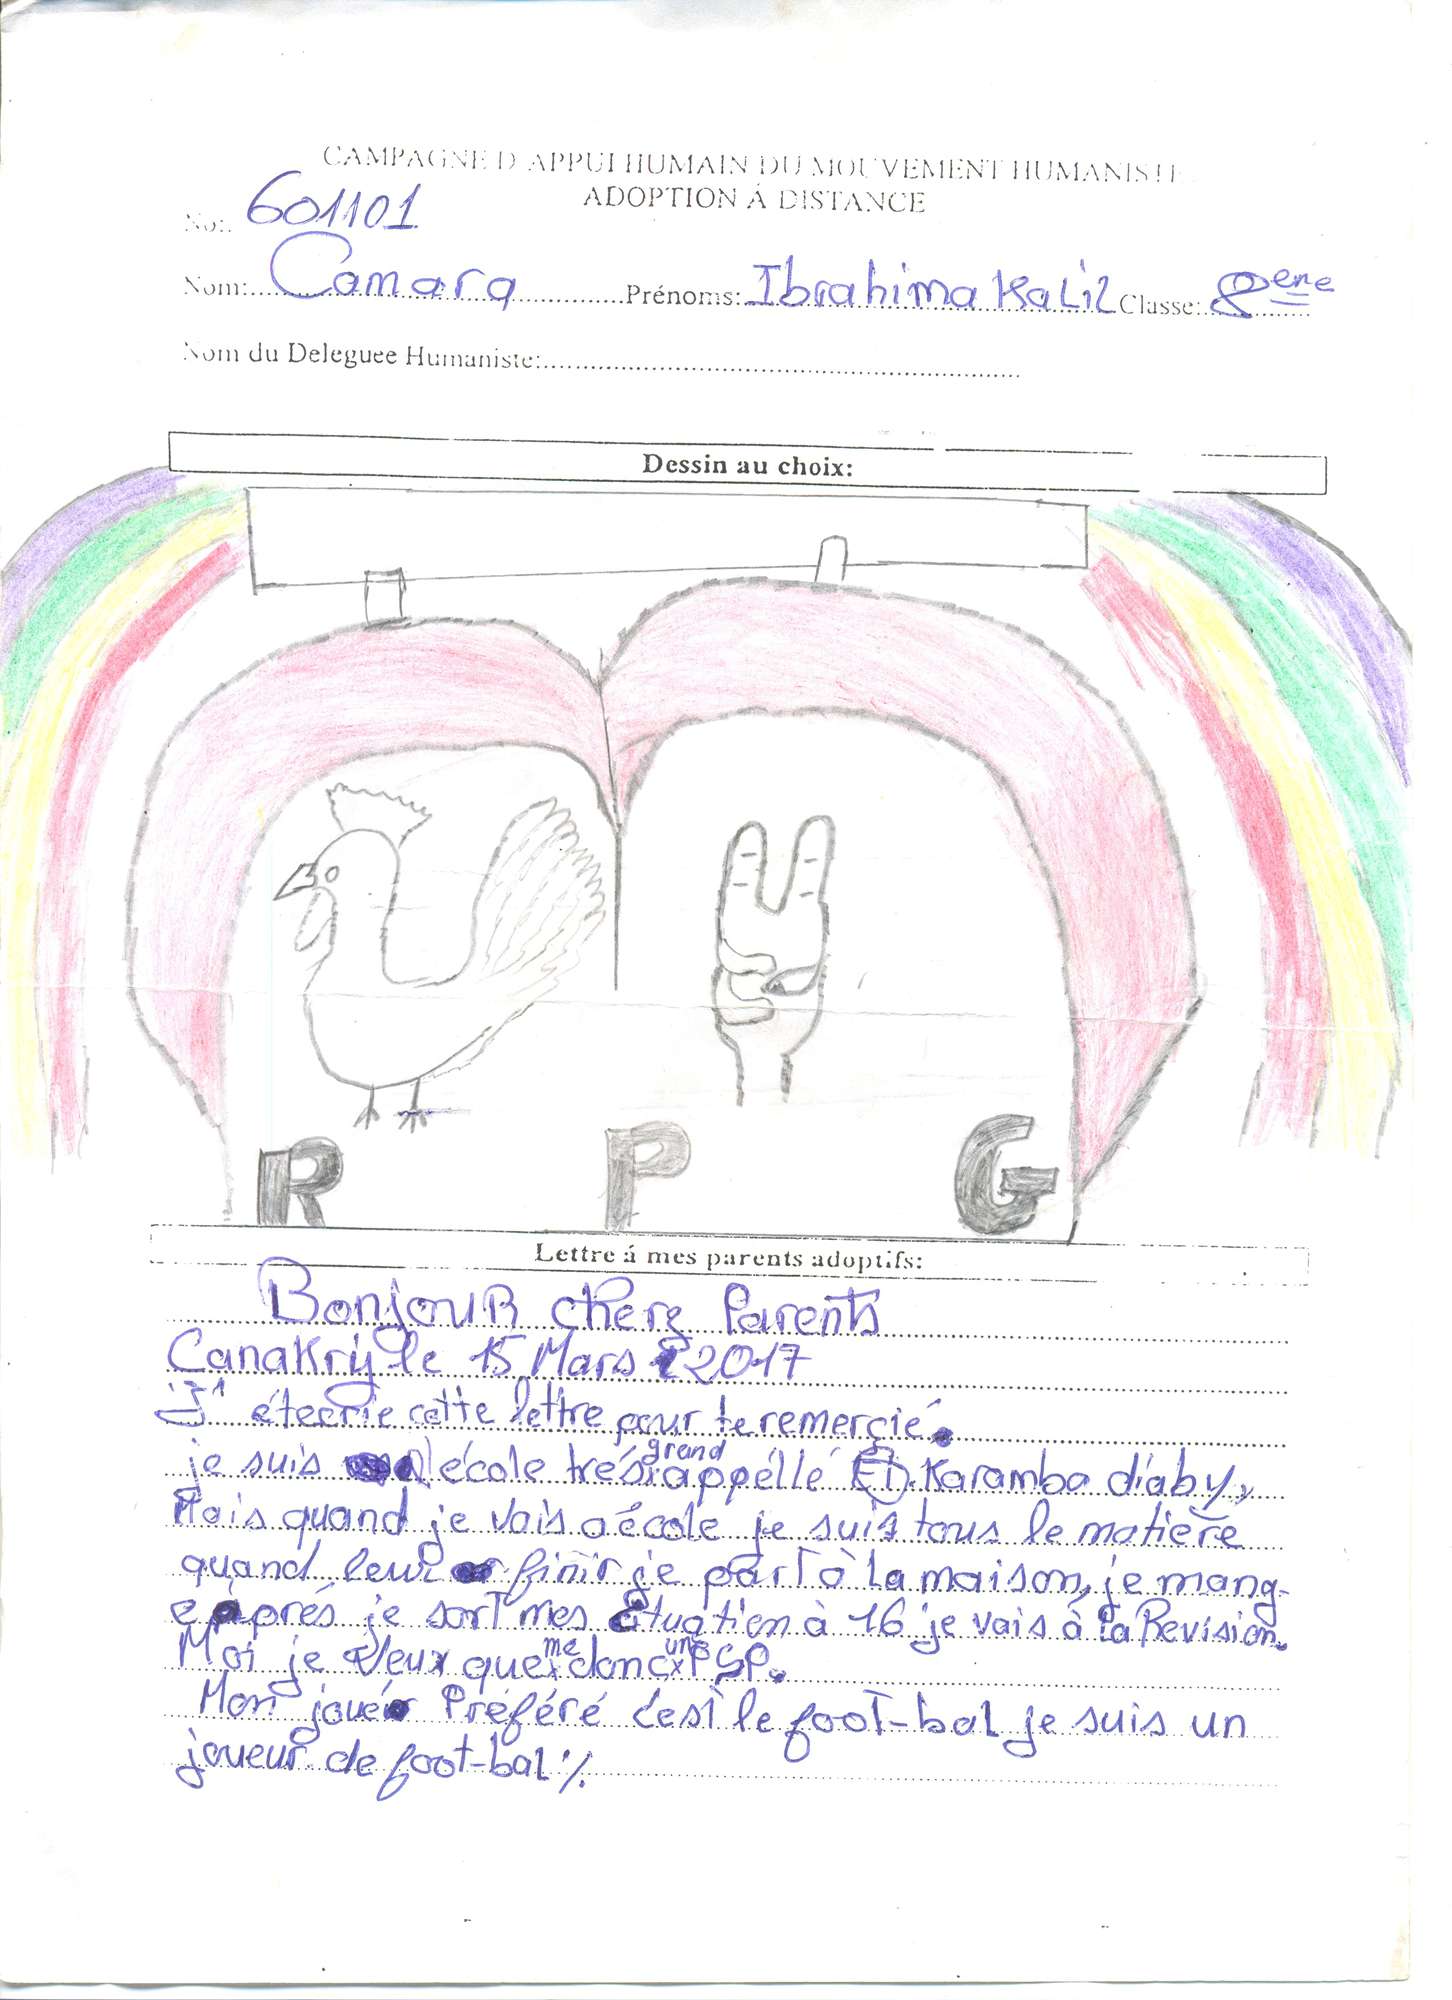 CAMPAGNE D'APPUI HUMAIN DU MOUVEMENT HUMANISTE
ADOPTION Á DISTANCE
No: 601101
Nom: Camara Prénoms: Ibrahima Kalil Classe: 8ene
Nom du Deleguee Humaniste:
Dessin au choix:
R P G
Lettre á mes parents adoptifs:
Bonjour cherz Parents
Canakry le 15 Mars 2017
J' étecrie cette lettre pour te remerçié.
je suis école trés grand appéllé Karamba diaby,
Mais quand je vais a école je suis tous le matière
quand leur finir je part à la maison, je mang-
e aprés je sort mes étuation à 16 je vais à la Revision.
Moi je veux que me donc une PSP.
Mon joué Préféré c'est le foot-bal je suis un
joueur de foot-bal %